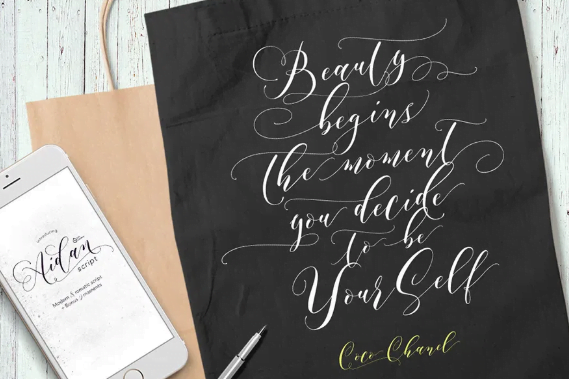 Beauty
begins
the moment
you decide
to be
YourSelf
Coco Chanel
Aidan
script
Modern & romatic script
+ Bonus Ornaments